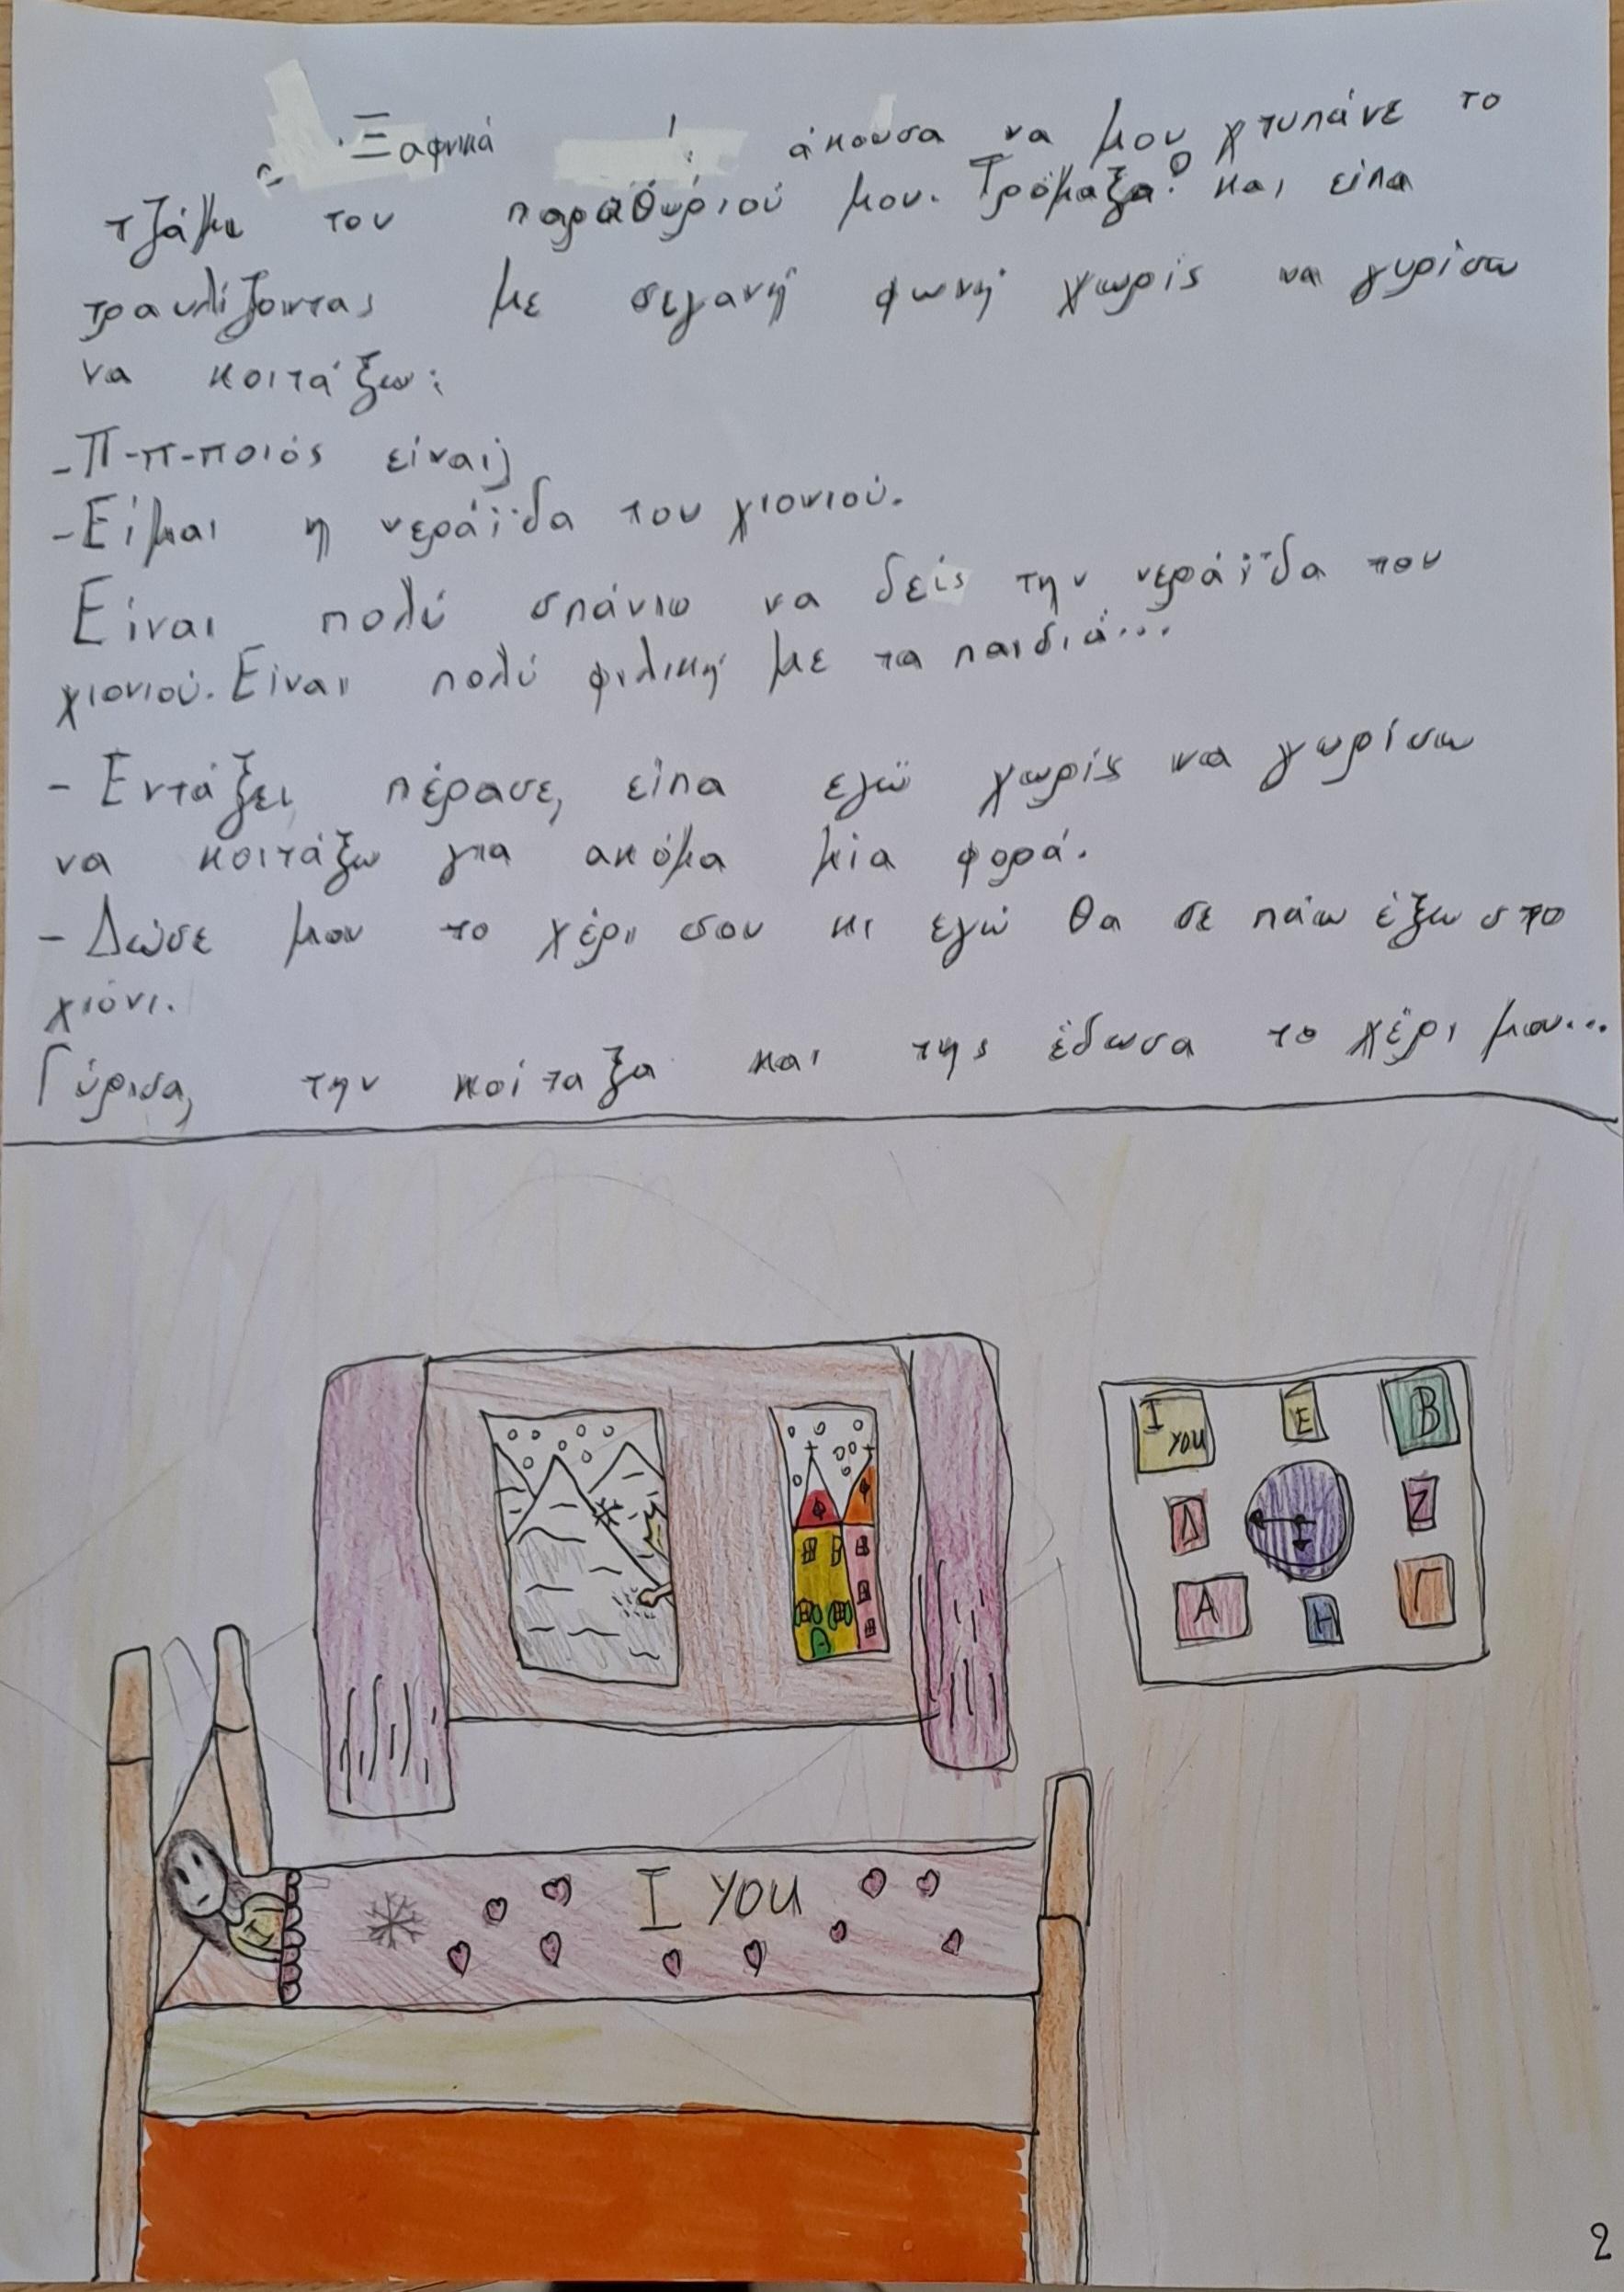 Ξαφνικά άκουσα να μου χτυπάνε το
τζάμι του παραθύριού μου. Τρόμαξα! και είπα
τραυλίζοντας με σιγανή φωνή χωρίς να γυρίσω
να κοιτάξω:
-Π-π-ποιός είναι;
-Είμαι η νεράϊδα του χιονιού.
Είναι πολύ σπάνιο να δείς την νεράϊδα του
χιονιού. Είναι πολύ φιλική με τα παιδιά...
- Εντάξει, πέρασε, είπα εγώ χωρίς να γυρίσω
να κοιτάξω για ακόμα μία φορά.
- Δώσε μου το χέρι σου κι εγώ θα σε πάω έξω στο
χιόνι.
Γύρισα, την κοίταξα και της έδωσα το χέρι μου...
I YOU
E
B
Δ
Z
A
H
Γ
I YOU
I
2